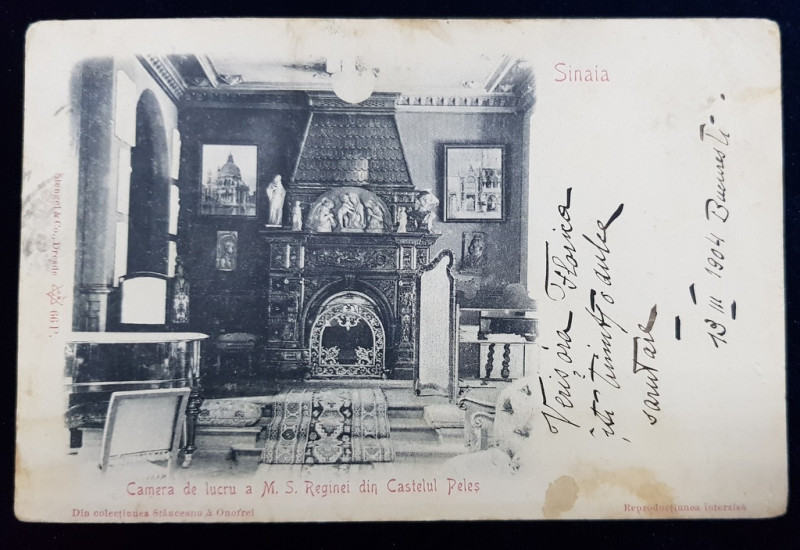 Sinaia
Verișoara Florica
îți trimit o dulce
sarutare
13 III 1904 Bucuresti
Stengel & Co., Dresde 66 P.
Camera de lucru a M. S. Reginei din Castelul Peleș
Din colecțiunea Stănceanu & Onofrei
Reproducțiunea interzisă